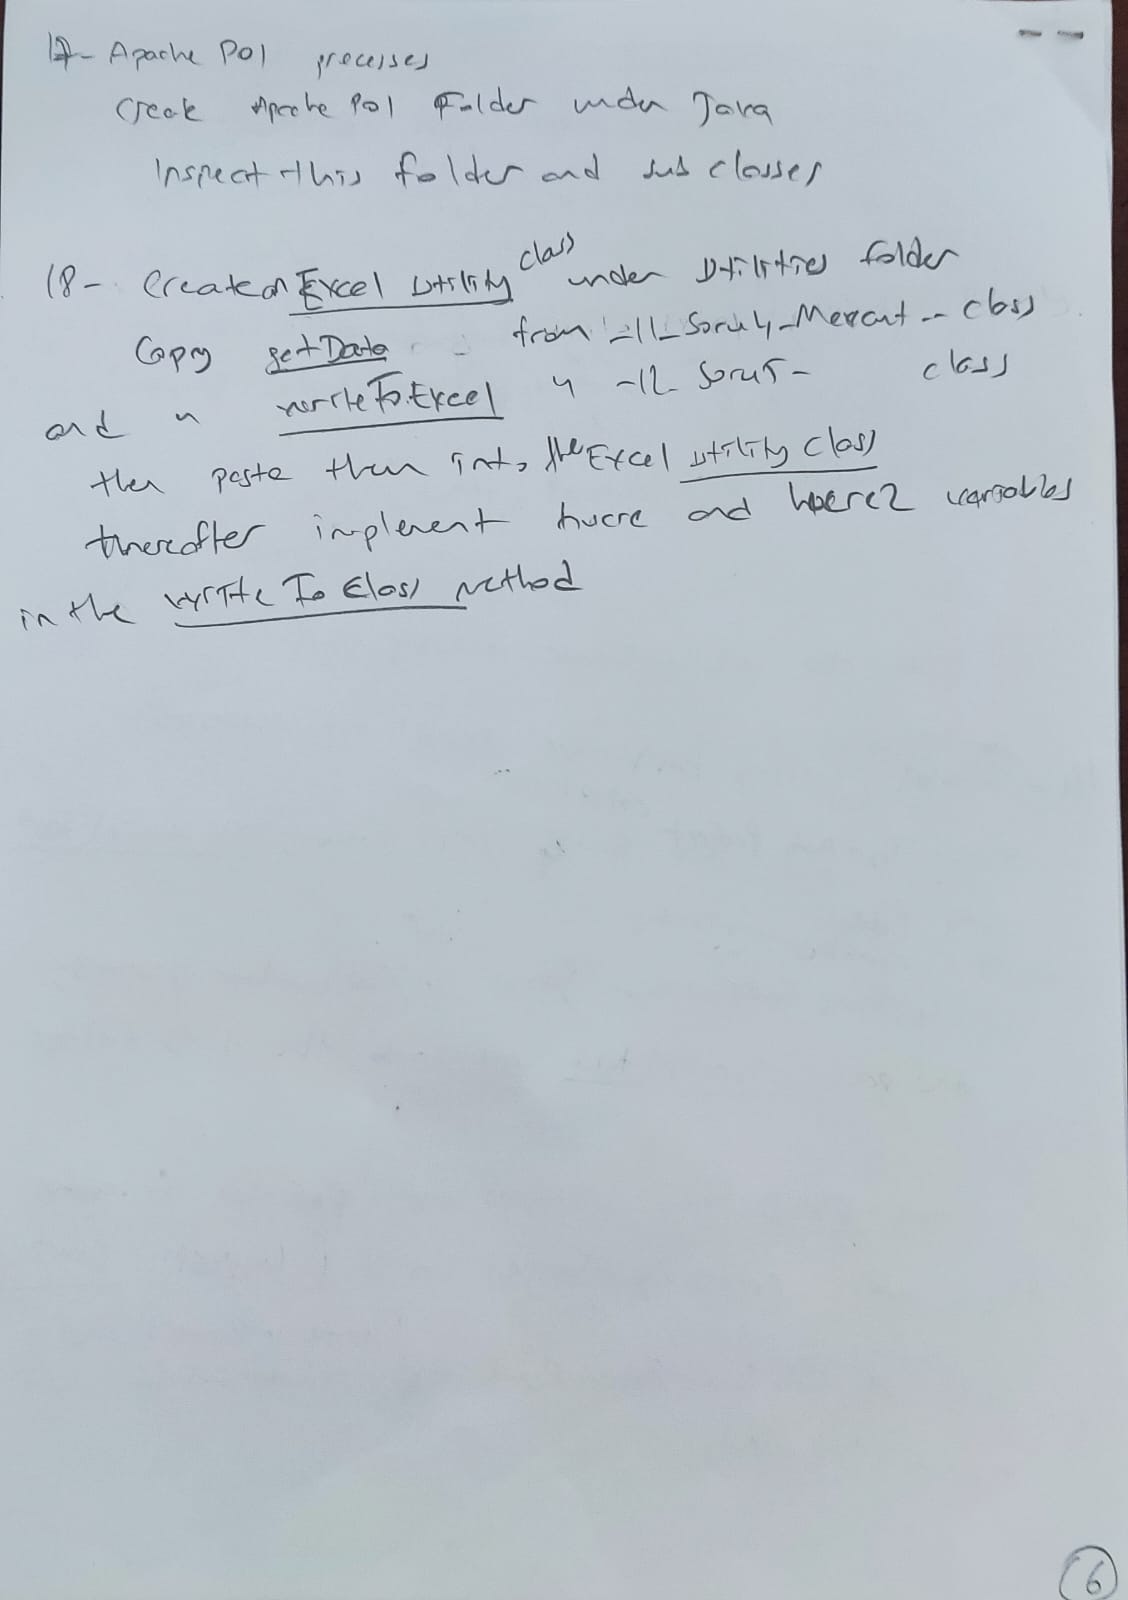 17- Apache POI processes
Create Apache POI Folder under Java
Inspect this folder and sub classes
18- Create an Excel Utility class under Utilities folder
Copy getData from _11_Soru4_Mevcut -- class
and " writeToExcel " _12_Soru5_ class
then paste them into the Excel utility class
thereafter implement hucre and hucre2 variables
in the write To Class method
6